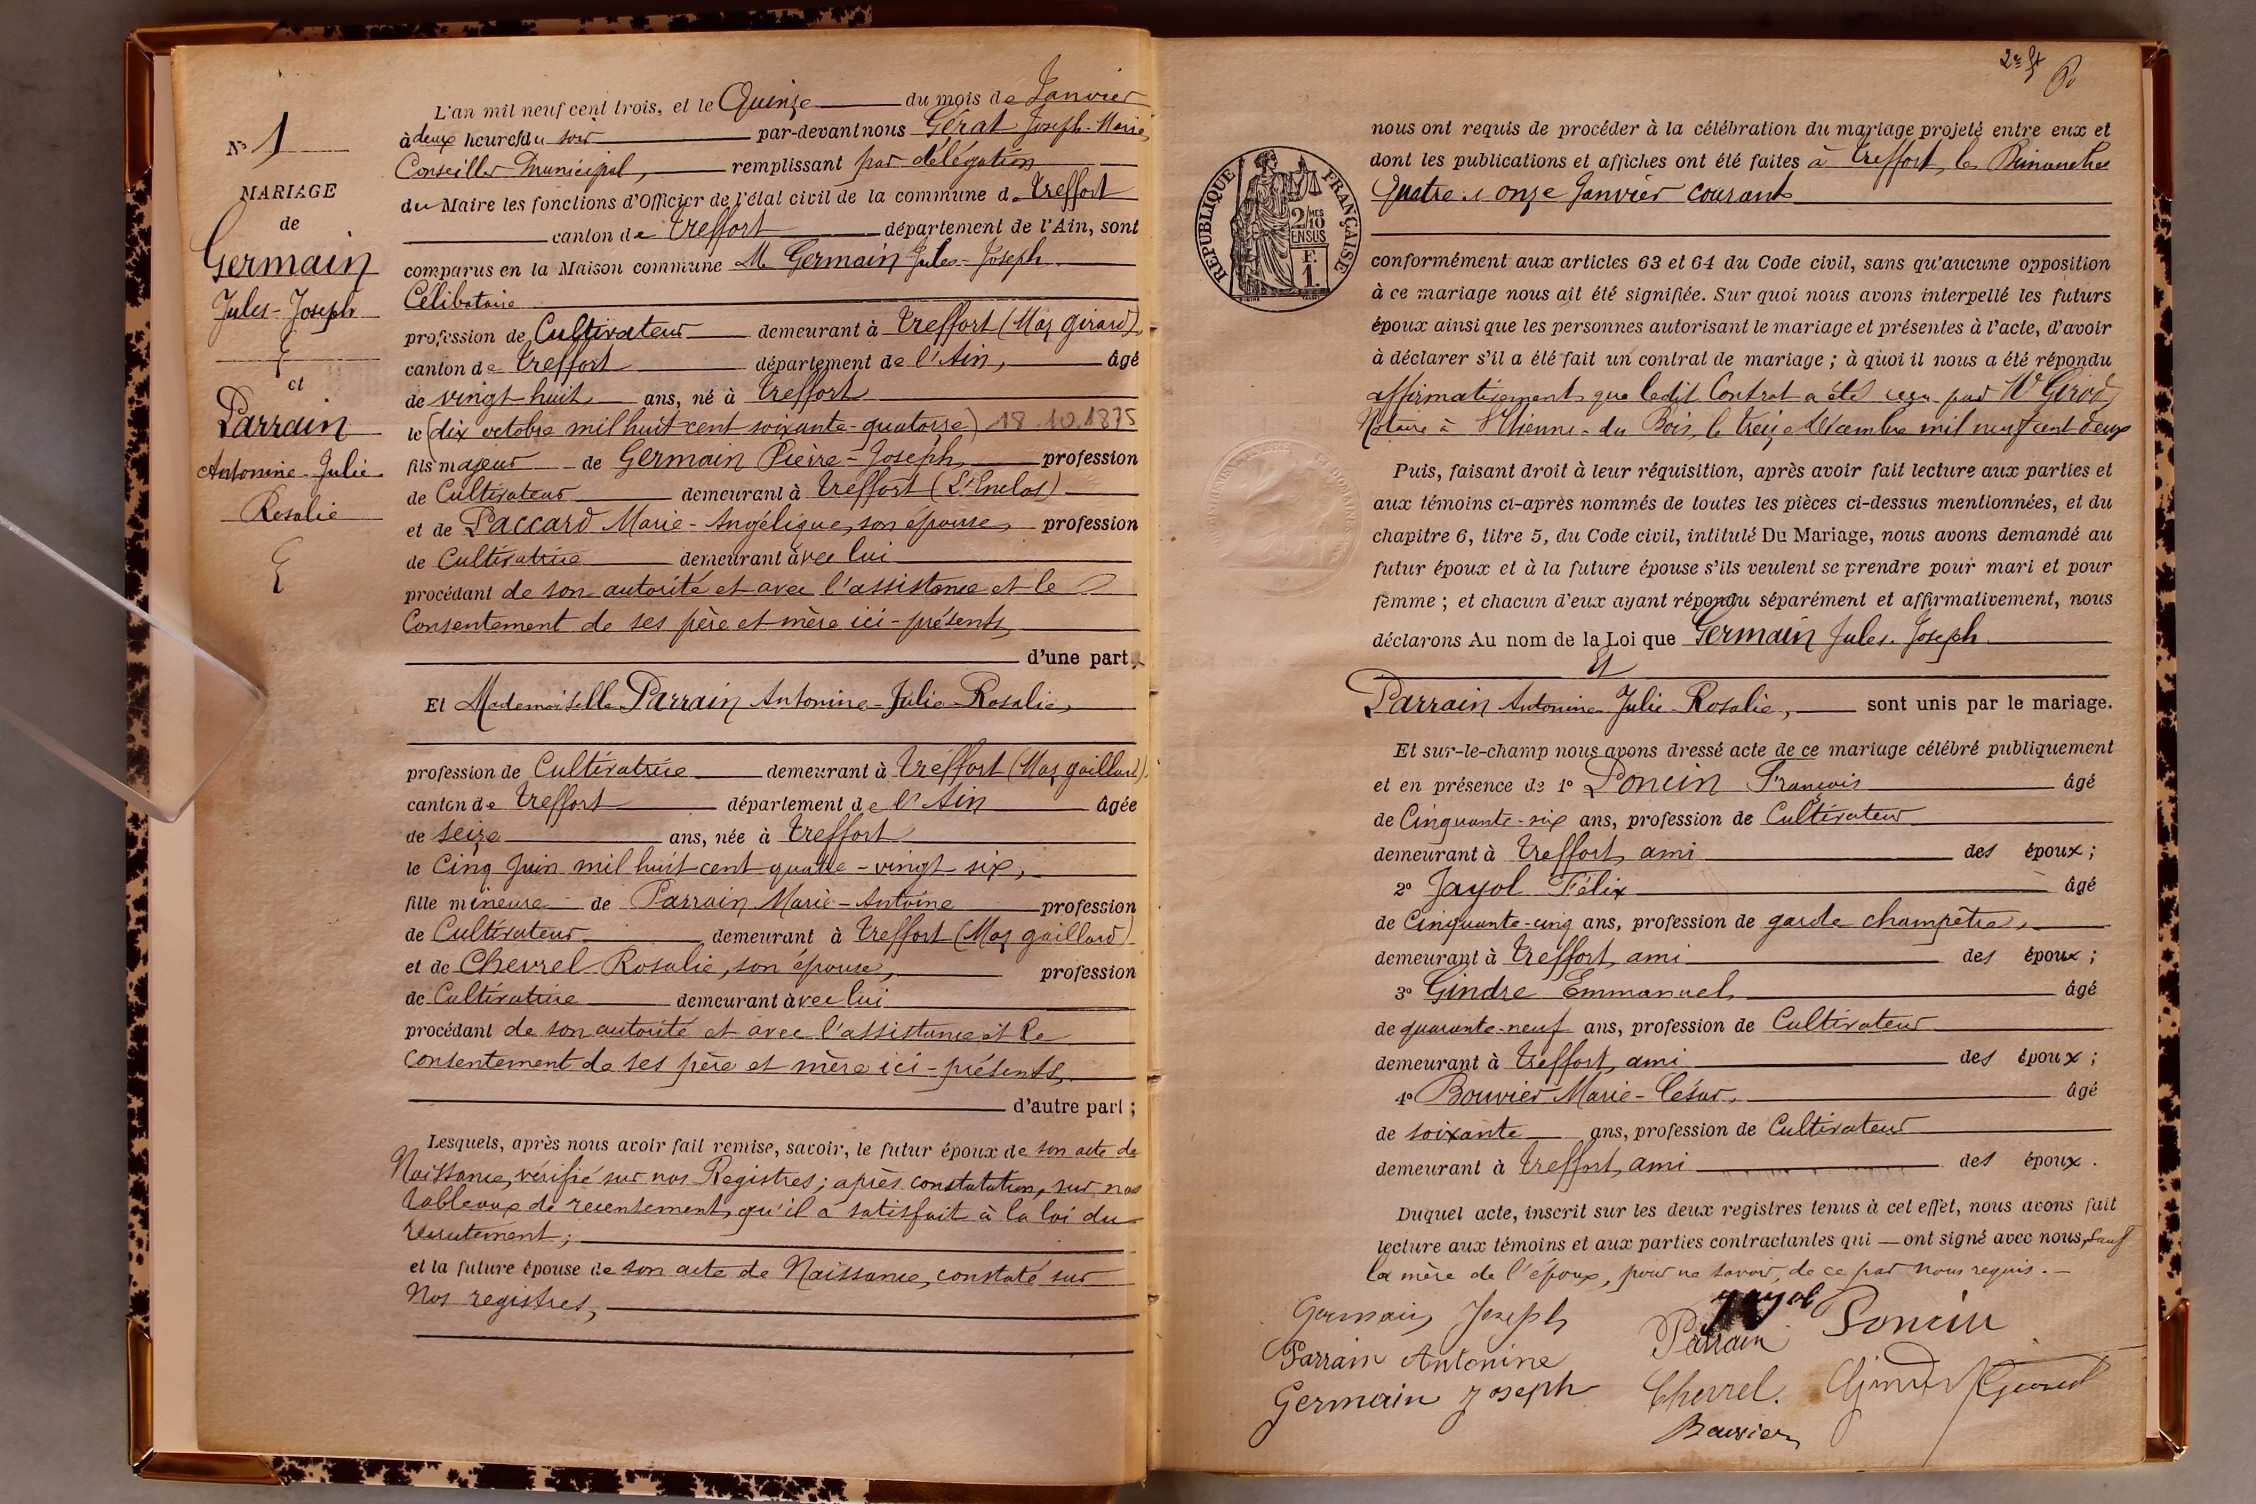 N° 1
MARIAGE
de
Germain
Jules-Joseph
et
Parrain
Antonine-Julie
Rosalie
L'an mil neuf cent trois, et le Quinze du mois de Janvier
à deux heures du soir par-devant nous Gérat Joseph-Marie,
Conseiller Municipal, remplissant par délégation
du Maire les fonctions d'Officier de l'état civil de la commune de Treffort
canton de Treffort département de l'Ain, sont
comparus en la Maison commune M. Germain Jules-Joseph
Célibataire
profession de Cultivateur demeurant à Treffort (Maz girard),
canton de Treffort département de l'Ain, âgé
de vingt huit ans, né à Treffort
le (dix octobre mil huit cent soixante-quatorze) 18.10.1875
fils majeur de Germain Pierre-Joseph, profession
de Cultivateur demeurant à Treffort (L'Enclos)
et de Paccard Marie-Angélique, son épouse, profession
de Cultivatrice demeurant avec lui
procédant de son autorité et avec l'assistance et le
Consentement de ses père et mère ici-présents,
d'une part,
Et Mademoiselle Parrain Antonine-Julie-Rosalie,
profession de Cultivatrice demeurant à Treffort (Maz gaillard),
canton de Treffort département de l'Ain âgée
de seize ans, née à Treffort
le Cinq Juin mil huit cent quatre-vingt six,
fille mineure de Parrain Marie-Antoine profession
de Cultivateur demeurant à Treffort (Maz gaillard)
et de Chevrel Rosalie, son épouse, profession
de Cultivatrice demeurant avec lui
procédant de son autorité et avec l'assistance et le
consentement de ses père et mère ici-présents,
d'autre part ;
Lesquels, après nous avoir fait remise, savoir, le futur époux de son acte de
Naissance, vérifié sur nos Registres ; après constatation, sur nos
tableaux de recensement, qu'il a satisfait à la loi du
recrutement ;
et la future épouse de son acte de Naissance, constaté sur
Nos registres,
2e ft
RÉPUBLIQUE FRANÇAISE
2/10 MES
EN SUS
F.
1.
nous ont requis de procéder à la célébration du mariage projeté entre eux et
dont les publications et affiches ont été faites à Treffort, les Dimanches
Quatre & onze Janvier courant
conformément aux articles 63 et 64 du Code civil, sans qu'aucune opposition
à ce mariage nous ait été signifiée. Sur quoi nous avons interpellé les futurs
époux ainsi que les personnes autorisant le mariage et présentes à l'acte, d'avoir
à déclarer s'il a été fait un contrat de mariage ; à quoi il nous a été répondu
affirmativement que ledit Contrat a été reçu par Me Girod,
Notaire à St Etienne-du Bois, le treize Décembre mil neuf cent deux
Puis, faisant droit à leur réquisition, après avoir fait lecture aux parties et
aux témoins ci-après nommés de toutes les pièces ci-dessus mentionnées, et du
chapitre 6, titre 5, du Code civil, intitulé Du Mariage, nous avons demandé au
futur époux et à la future épouse s'ils veulent se prendre pour mari et pour
femme ; et chacun d'eux ayant répondu séparément et affirmativement, nous
déclarons Au nom de la Loi que Germain Jules-Joseph
Et
Parrain Antonine-Julie-Rosalie, sont unis par le mariage.
Et sur-le-champ nous avons dressé acte de ce mariage célébré publiquement
et en présence de 1° Poncin François âgé
de Cinquante-six ans, profession de Cultivateur
demeurant à Treffort, ami des époux ;
2° Jayol Félix âgé
de Cinquante-cinq ans, profession de garde champêtre,
demeurant à Treffort, ami des époux ;
3° Gindre Emmanuel, âgé
de quarante-neuf ans, profession de Cultivateur
demeurant à Treffort, ami des époux ;
4° Bouvier Marie-César, âgé
de soixante ans, profession de Cultivateur
demeurant à Treffort, ami des époux.
Duquel acte, inscrit sur les deux registres tenus à cet effet, nous avons fait
lecture aux témoins et aux parties contractantes qui ont signé avec nous, sauf
la mère de l'époux, pour ne savoir, de ce par nous requis.
Germain Joseph
Jayol
Poncin
Parrain Antonine
Parrain
Germain Joseph
Chevrel.
Gindre
Bouvier